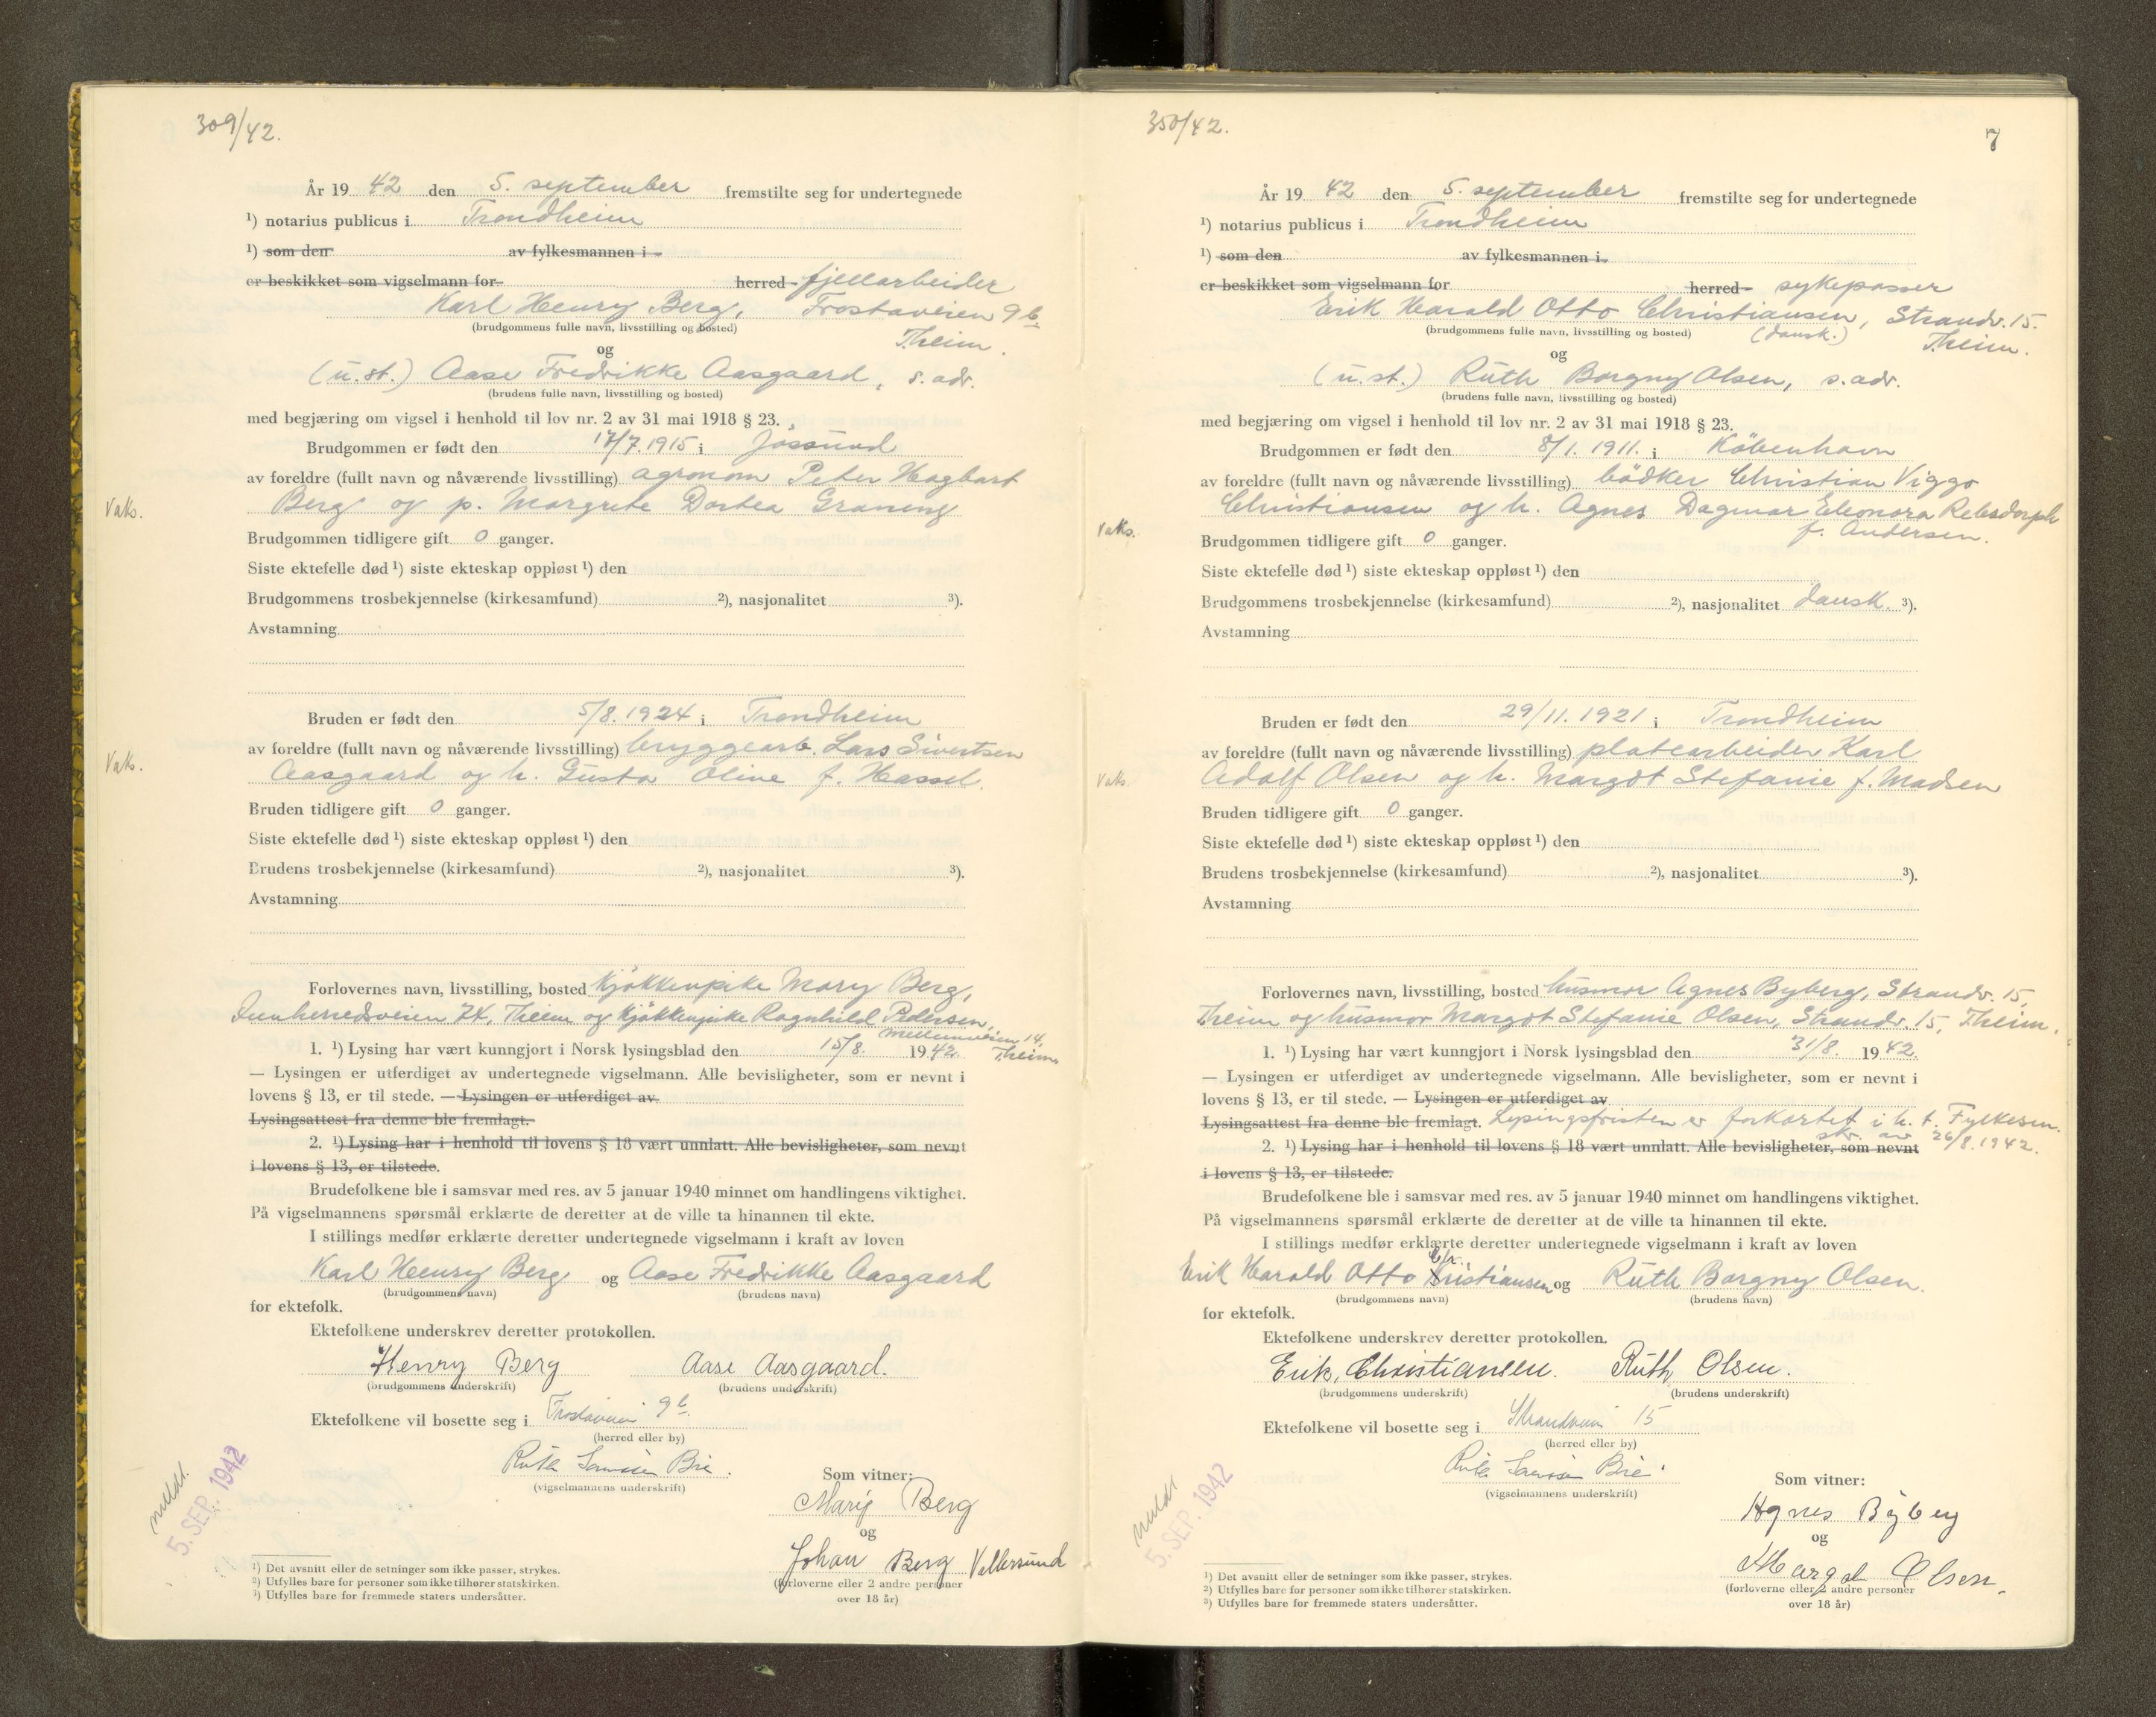 309/42.
År 19 42 den 5. september fremstilte seg for undertegnede
¹) notarius publicus i Trondheim
¹) som den av fylkesmannen i
er beskikket som vigselmann for herred fjellarbeider
Karl Henry Berg, Frostaveien 9b
(brudgommens fulle navn, livsstilling og bosted)
T.heim.
og
(u.st.) Aase Fredrikke Aasgaard, s. adr.
(brudens fulle navn, livsstilling og bosted)
med begjæring om vigsel i henhold til lov nr. 2 av 31 mai 1918 § 23.
Brudgommen er født den 17/7.1915 i Jøssund
av foreldre (fullt navn og nåværende livsstilling) agronom Peter Hagbart
Vaks. Berg og p. Margrete Dortea Graneng
Brudgommen tidligere gift 0 ganger.
Siste ektefelle død ¹) siste ekteskap oppløst ¹) den
Brudgommens trosbekjennelse (kirkesamfund) ²), nasjonalitet ³).
Avstamning
Bruden er født den 5/8.1924 i Trondheim
av foreldre (fullt navn og nåværende livsstilling) bryggearb. Lars Sivertsen
Vaks. Aasgaard og h. Gusta Oline f. Hassel.
Bruden tidligere gift 0 ganger.
Siste ektefelle død ¹) siste ekteskap oppløst ¹) den
Brudens trosbekjennelse (kirkesamfund) ²), nasjonalitet ³).
Avstamning
Forlovernes navn, livsstilling, bosted kjökkenpike Mary Berg,
Innherredsveien 74, T.heim og kjökkenpike Ragnhild Pedersen,
Mellomveien 14,
1. ¹) Lysing har vært kunngjort i Norsk lysingsblad den 15/8. 1942. T.heim.
— Lysingen er utferdiget av undertegnede vigselmann. Alle bevisligheter, som er nevnt i
lovens § 13, er til stede. — Lysingen er utferdiget av
Lysingsattest fra denne ble fremlagt.
2. ¹) Lysing har i henhold til lovens § 18 vært unnlatt. Alle bevisligheter, som nevnt
i lovens § 13, er tilstede.
Brudefolkene ble i samsvar med res. av 5 januar 1940 minnet om handlingens viktighet.
På vigselmannens spørsmål erklærte de deretter at de ville ta hinannen til ekte.
I stillings medfør erklærte deretter undertegnede vigselmann i kraft av loven
Karl Henry Berg og Aase Fredrikke Aasgaard
(brudgommens navn) (brudens navn)
for ektefolk.
Ektefolkene underskrev deretter protokollen.
Henry Berg Aase Aasgaard.
(brudgommens underskrift) (brudens underskrift)
Ektefolkene vil bosette seg i Frostaveien 9b.
(herred eller by)
Som vitner:
(vigselmannens underskrift)
meldt.
5. SEP. 1942
Mary Berg
og
Johan Berg Vallersund
(forloverne eller 2 andre personer
over 18 år)
¹) Det avsnitt eller de setninger som ikke passer, strykes.
²) Utfylles bare for personer som ikke tilhører statskirken.
³) Utfylles bare for fremmede staters undersåtter.
350/42.
7
År 19 42 den 5. september fremstilte seg for undertegnede
¹) notarius publicus i Trondheim
¹) som den av fylkesmannen i
er beskikket som vigselmann for herred sykepasser
Erik Harald Otto Christiansen, Strandv. 15.
(brudgommens fulle navn, livsstilling og bosted) (dansk.) T.heim.
og
(u.st.) Ruth Borgny Olsen, s. adr.
(brudens fulle navn, livsstilling og bosted)
med begjæring om vigsel i henhold til lov nr. 2 av 31 mai 1918 § 23.
Brudgommen er født den 8/1. 1911. i Köbenhavn
av foreldre (fullt navn og nåværende livsstilling) bödker Christian Viggo
Christiansen og h. Agnes Dagmar Eleonora Rebsdorph
Vaks. f. Andersen.
Brudgommen tidligere gift 0 ganger.
Siste ektefelle død ¹) siste ekteskap oppløst ¹) den
Brudgommens trosbekjennelse (kirkesamfund) ²), nasjonalitet dansk ³).
Avstamning
Bruden er født den 29/11. 1921 i Trondheim
av foreldre (fullt navn og nåværende livsstilling) platearbeider Karl
Vaks. Adolf Olsen og h. Margot Stefanie f. Madsen
Bruden tidligere gift 0 ganger.
Siste ektefelle død ¹) siste ekteskap oppløst ¹) den
Brudens trosbekjennelse (kirkesamfund) ²), nasjonalitet ³).
Avstamning
Forlovernes navn, livsstilling, bosted husmor Agnes Byberg, Strandv. 15,
T.heim og husmor Margot Stefanie Olsen, Strandv. 15, T.heim.
1. ¹) Lysing har vært kunngjort i Norsk lysingsblad den 31/8. 1942.
— Lysingen er utferdiget av undertegnede vigselmann. Alle bevisligheter, som er nevnt i
lovens § 13, er til stede. — Lysingen er utferdiget av
Lysingsattest fra denne ble fremlagt. Lysingsfristen er forkortet i h. t. Fylkesm.
skr. av 26/8.1942.
2. ¹) Lysing har i henhold til lovens § 18 vært unnlatt. Alle bevisligheter, som nevnt
i lovens § 13, er tilstede.
Brudefolkene ble i samsvar med res. av 5 januar 1940 minnet om handlingens viktighet.
På vigselmannens spørsmål erklærte de deretter at de ville ta hinannen til ekte.
I stillings medfør erklærte deretter undertegnede vigselmann i kraft av loven
Erik Harald Otto Christiansen og Ruth Borgny Olsen.
(brudgommens navn) (brudens navn)
for ektefolk.
Ektefolkene underskrev deretter protokollen.
Erik Christiansen. Ruth Olsen.
(brudgommens underskrift) (brudens underskrift)
Ektefolkene vil bosette seg i Strandveien 15
(herred eller by)
Som vitner:
(vigselmannens underskrift)
meldt
5. SEP. 1942
Agnes Byberg
og
Margot Olsen.
(forloverne eller 2 andre personer
over 18 år)
¹) Det avsnitt eller de setninger som ikke passer, strykes.
²) Utfylles bare for personer som ikke tilhører statskirken.
³) Utfylles bare for fremmede staters undersåtter.